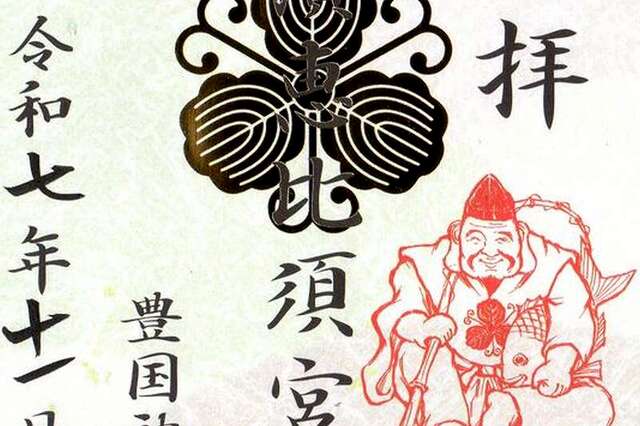 拝
恵比須宮
豊国神
令和七年十一月